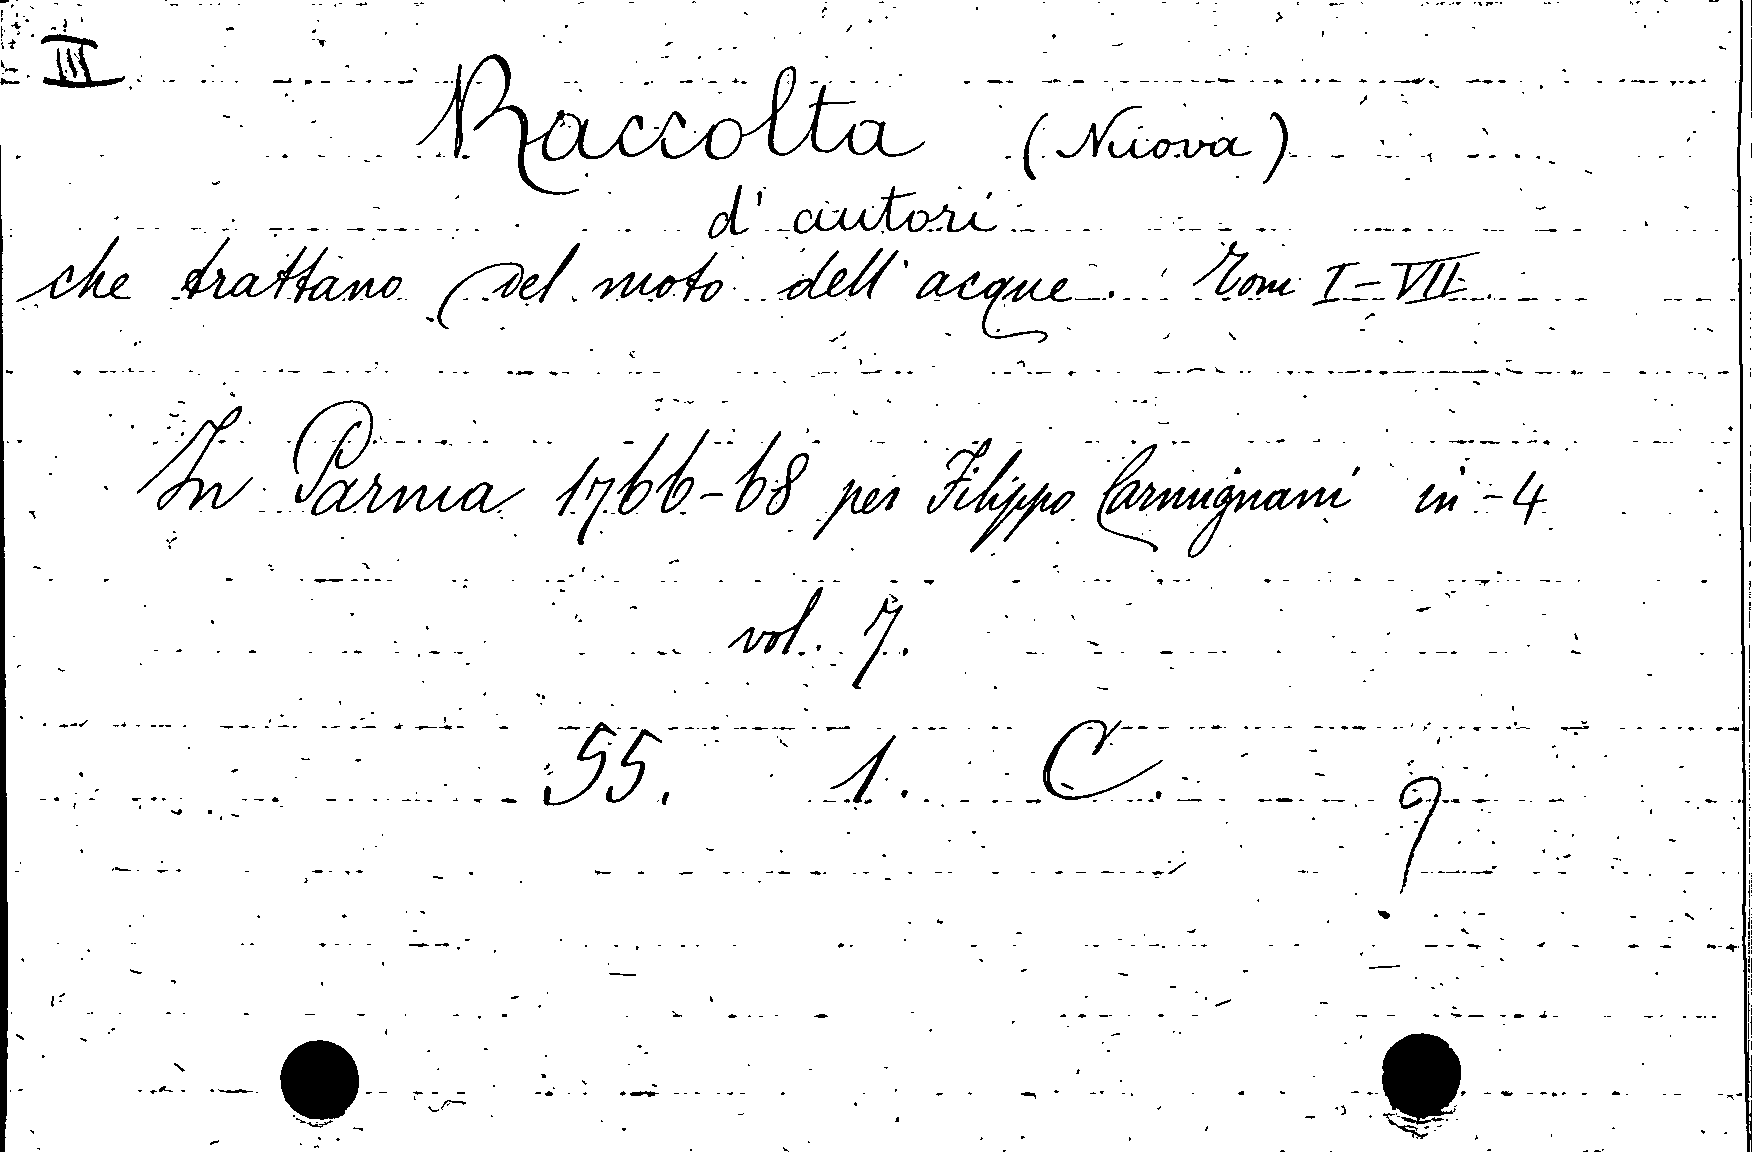 III
Raccolta (Nuova)
d' autori
che trattano del moto dell' acque. Tom I-VII
In Parma 1766-68 per Filippo Carmignani in-4
vol. 7.
55. 1. C.
9